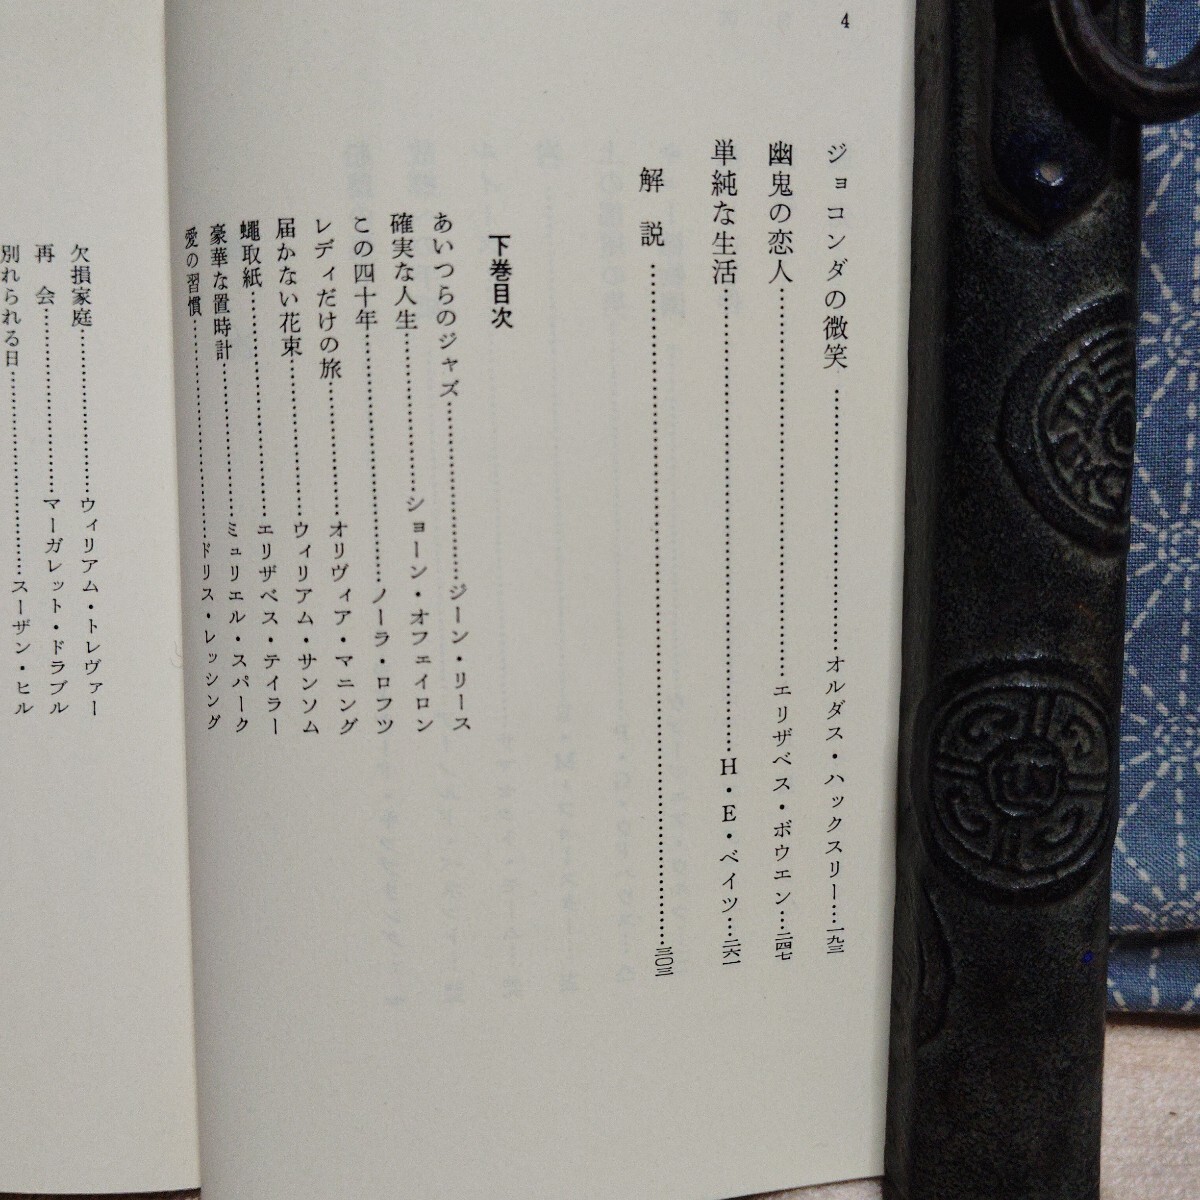 4
ジョコンダの微笑……………………オルダス・ハックスリー…一九三
幽鬼の恋人……………………………エリザベス・ボウエン…二四七
単純な生活……………………………H・E・ベイツ…二六一
解説……………………………………………………三〇三
下巻目次
あいつらのジャズ………………ジーン・リース
確実な人生………………ショーン・オフェイロン
この四十年………………………ノーラ・ロフツ
レディだけの旅……………オリヴィア・マニング
届かない花束……………ウィリアム・サンソム
蠅取紙……………………エリザベス・テイラー
豪華な置時計……………ミュリエル・スパーク
愛の習慣…………………ドリス・レッシング
欠損家庭……………ウィリアム・トレヴァー
再会………………マーガレット・ドラブル
別れられる日………………スーザン・ヒル